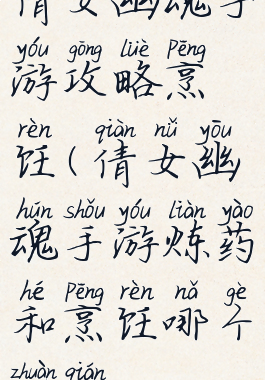 倩女幽魂手
yóu gōng lüè Pēng
游攻略烹
rèn qiàn nǚ yōu
饪(倩女幽
hún shǒu yóu liàn yào
魂手游炼药
hé Pēng rèn nǎ gè
和烹饪哪个
zhuàn qián